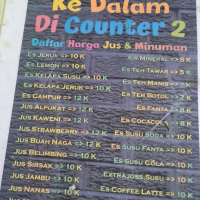 Ke Dalam
Di Counter 2
Daftar Harga Jus & Minuman
Es Jeruk => 10 K
Es Lemon => 10 K
Es Kelapa Susu => 10 K
Es Kelapa Jeruk => 10 K
Es Campur => 12 K
Jus Alpukat => 12 K
Jus Kaweni => 12 K
Jus Strawberry => 12 K
Jus Buah Naga => 12 K
Jus Belimbing => 10 K
Jus Sirsak => 10 K
Jus Jambu => 10 K
Jus Nanas => 10 K
Air Mineral => 5 K
Es Teh Tawar => 5 K
Es Teh Manis =>
Es Teh Botol =>
Es Fanta =>
Es Cocacola =>
Es Susu Soda => 10 K
Es Susu Fanta => 10 K
Es Susu Cola => 10 K
Extrajoss Susu => 10 K
Es Coffee Latte => 10 K